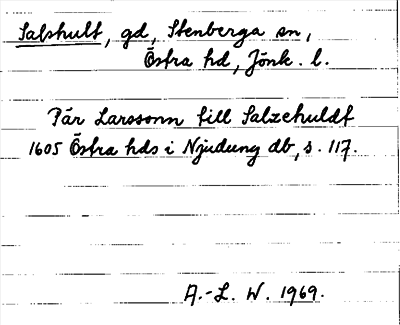 Salshult, gd, Stenberga sn,
Östra hd, Jönk. l.
Pär Larssonn till Salzehuldt
1605 Östra hds i Njudung db, s. 117.
A.-L. W. 1969.